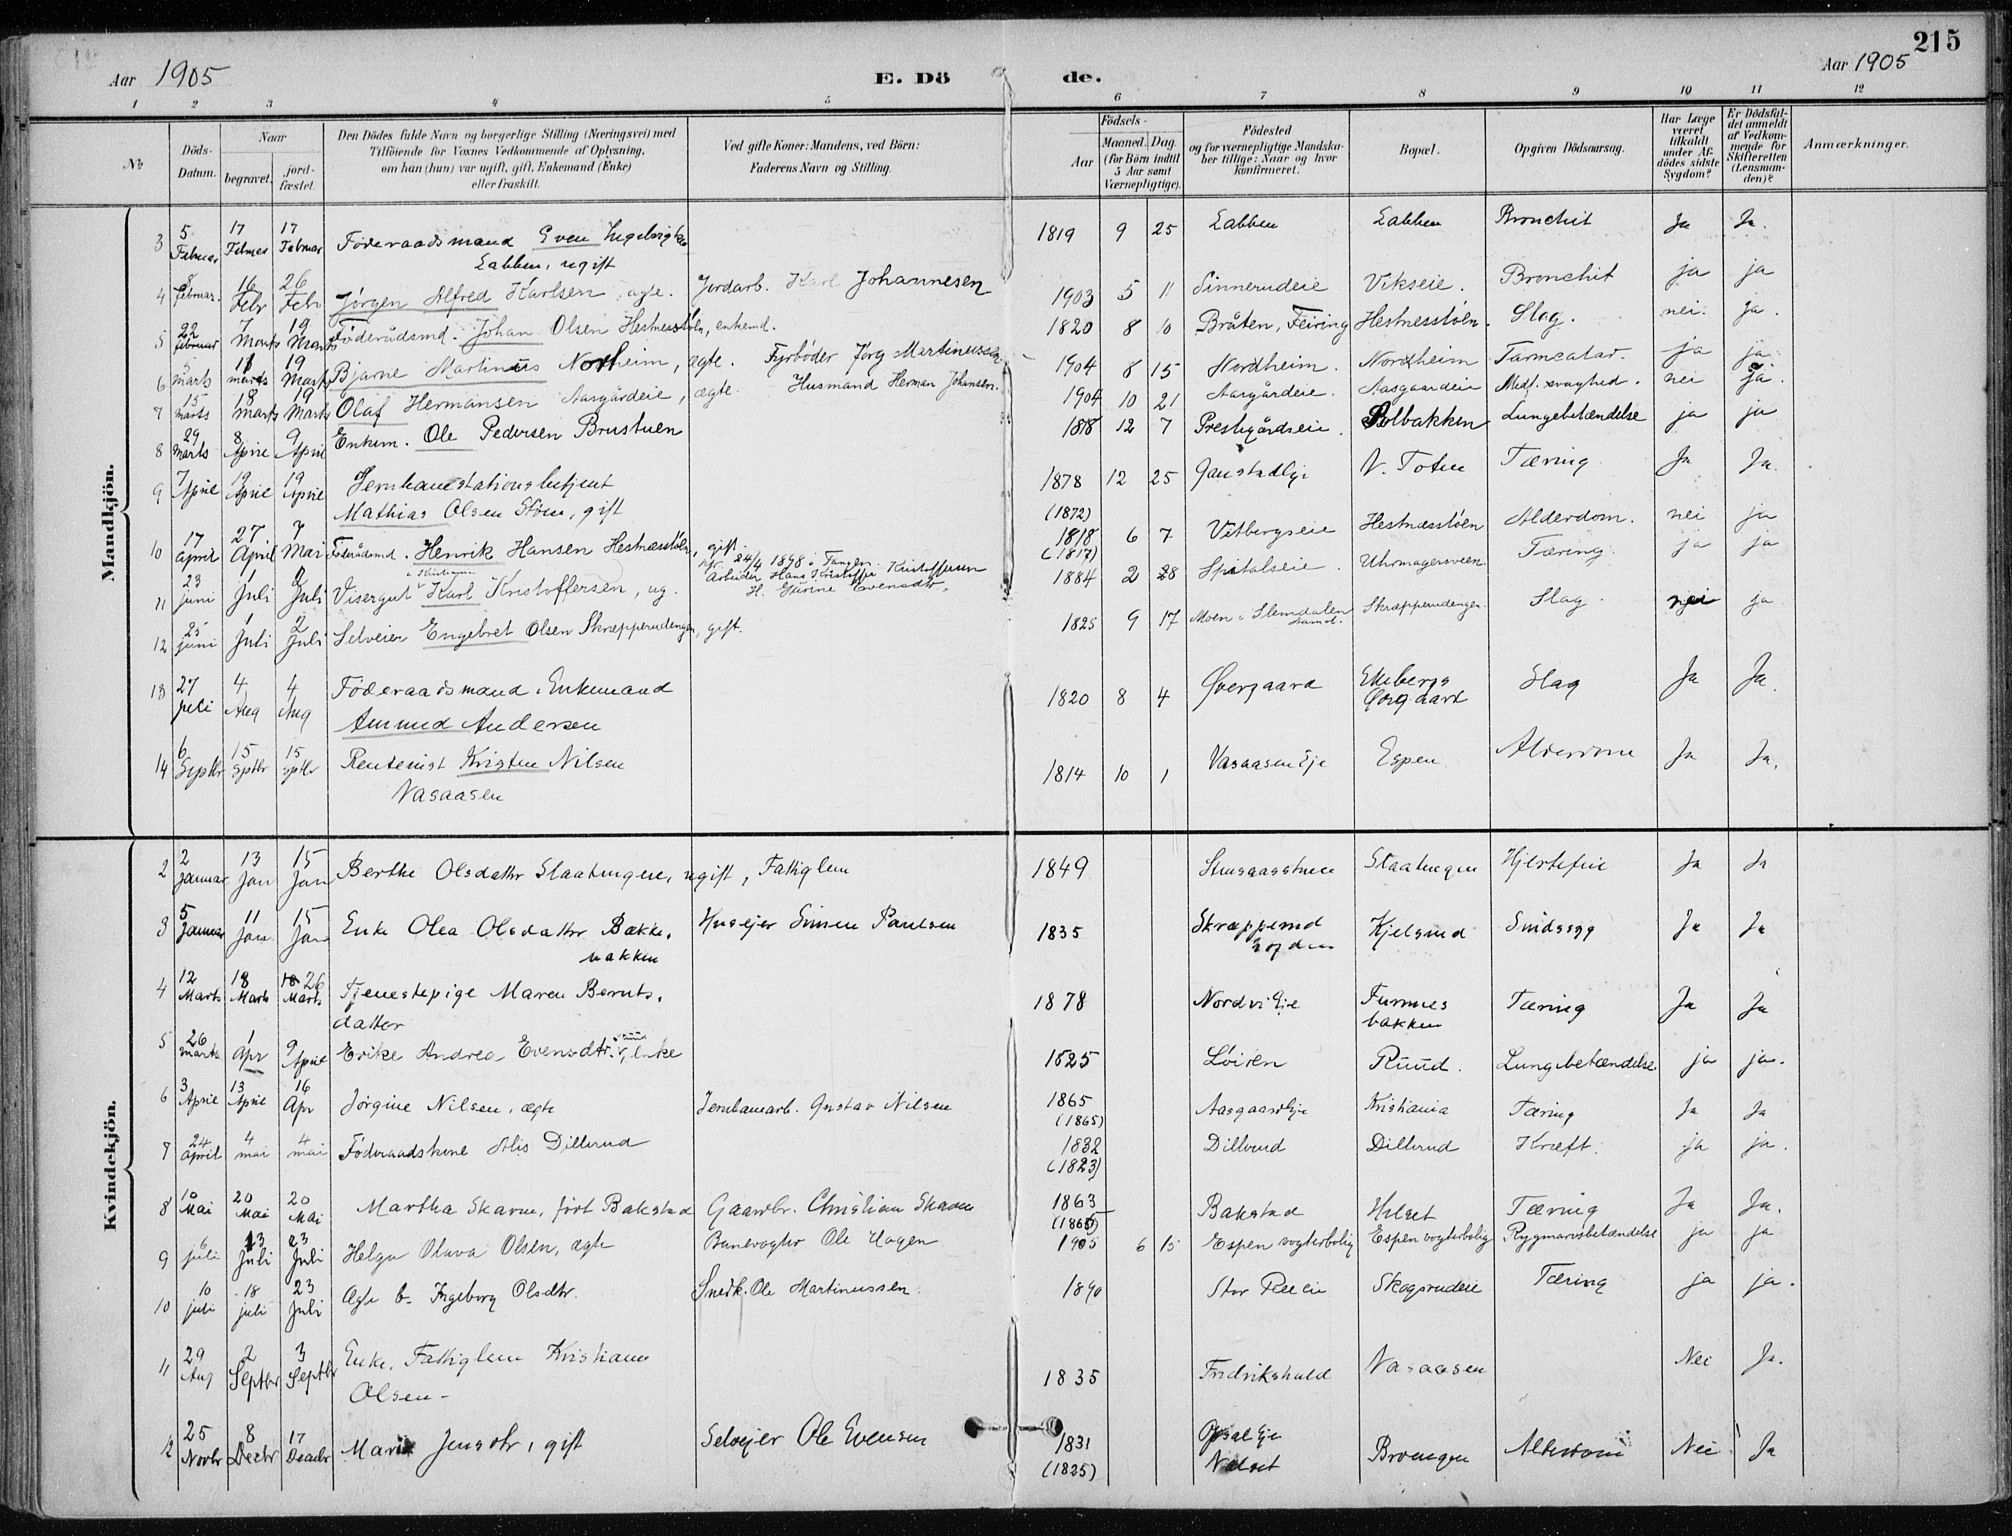 215
Aar 1905
E. Dö de.
Aar 1905
1 2 3 4 5 6 7 8 9 10 11 12
№ Döds-Datum. Naar begravet. jord-fæstet. Den Dödes fulde Navn og borgerlige Stilling (Næringsvei) med Tilföiende for Voxnes Vedkommende af Oplysning, om han (hun) var ugift, gift, Enkemand (Enke) eller fraskilt. Ved gifte Koner: Mandens, ved Börn: Faderens Navn og Stilling. Födsels- Aar Maaned. Dag. (for Börn indtil 5 Aar samt Værnepligtige). Födested og for værnepligtige Mandskaber tillige: Naar og hvor konfirmeret. Bopæl. Opgiven Dödsaarsag. Har Læge været tilkaldt under Afdödes sidste Sygdom? Er Dödsfaldet anmeldt af Vedkommende for Skifteretten (Lensmanden)? Anmærkninger.
Mandkjön.
3 5 Februar 17 Februar 17 Februar Föderaadsmand Even 1819 9 25 Labben Labben Bronchit Ja Ja.
Labben, ugift
4 8 februar. 16 Febr 26 Febr Jørgen Alfred Karlsen, ægte. Jordarb. Karl Johannesen 1903 5 11 Sinnerudeie Vikseie. Bronchit ja ja
5 22 februar 7 Marts 19 Marts Föderådsmd. Johan Olsen Hestnesstøen, enkemd. 1820 8 10 Bråten, Feiring Hestnesstøen. Slag. nei. ja.
6 marts 18 marts 19 Marts Bjarne Martinius Nordheim, ægte. Fyrbøder Jørg Martinussen 1904 8 15 Nordheim. Nordheim Tarmcatar. ja ja.
7 15 marts 18 marts 19 Marts Olaf Hermansen Aasgårdeie, ægte. Husmand Herman Johansen. 1904 10 21 Aasgårdeie. Aasgaardeie Medf. svaghed. nei ja.
8 29 marts 8 April 9 April Enkem. Ole Pedersen Brustuen 1818 12 7 Prestegårdseie. Solbakken Lungebetændelse ja ja
9 7 April 19 April 19 April Jernbanestationsbetjent 1878 12 25 V. Toten Tæring Ja Ja.
Mathias Olsen Stöen, gift (1872)
10 17 april 27 April 7 Mai Föderådsmd. Henrik Hansen Hestnesstøen, gift. 1818 6 7 Vitbergseie Hestnesstøen Alderdom. nei ja
(1817)
kfr. 24/4 1898 i Tangen.
11 23 juni 1 Juli 2 Juli Visergut Karl Kristoffersen, ug. Arbeider Hans Kristoffer Kristoffersen 1884 2 28 Spitalseie. Uhrmagersveen Tæring. ja ja
12 25 juni 1 Juli 2 Juli Selveier Engebret Olsen Skræpperudengen, gift. 1825 9 17 Moen i Slemdalen Skræpperudengen. Slag. nei ja
13 27 Juli 4 Aug 4 Aug Föderaadsmand. Enkemand 1820 8 4 Øvergaard Ekebergs Slag Ja Ja.
Amund Andersen
14 6 Septbr 15 Septbr 15 Septbr Rentenist Kristen Nilsen 1814 10 1 Vasaasen Eje Espen Alderdom Ja Ja.
Vasaasen
Kvindekjön.
2 2 Januar 13 Jan 15 Jan Berthe Olsdatter Slaatengen, ugift, Fattiglem 1849 Slaatengen Hjertefeil Ja Ja
3 5 Januar 11 Jan 15 Jan Enke Olea Olsdatter Bække- Husejer Simen Paulsen 1835 Skræpperud Kjelsrud Sindssyg Ja Ja
bakken
4 12 Marts 18 Marts 18 26 Marts Tjenestepige Maren Bernts- 1878 Nordvi Eje Furnes Tæring Ja Ja
datter bakken
5 26 marts 1 Apr 9 April Erike Andrea Evensdtr. Ruud, enke 1825 Løiren Ruud. Lungebetændelse ja ja.
6 3 April 13 April 16 Apr Jörgine Nilsen, ægte Jernbanearb. Gustav Nilsen 1865 Aasgaard Eje Kristiania Tæring Ja Ja
(1865)
7 24 april 4 mai 4 mai Föderaadskone Alis Dillerud 1832 Dillerud Dillerud Kræft. ja ja.
(1823)
8 10 Mai 20 Mai 20 Mai Martha Skaven, födt Bakstad Gaardbr. Christian Skaven 1863 Bakstad Helset Tæring Ja Ja.
(1865)
9 6 juli 13 Juli 23 Juli Helga Olava Olsen, ægte Banevogter Ole Hagen 1905 6 15 Espen vogterbolig Espen vogterbolig Rygmarvsbetændelse ja ja
10 10 juli 18 juli 23 Juli Ægte b. Ingeborg Olsdtr. Snedk. Ole Martinussen. 1890 Stor Ree eie Skogsrudeie Tæring ja ja.
11 29 Aug 2 Septbr 3 Septbr Enke, Fattiglem Kristiane 1835 Fredrikshald Vasaasen Nei Ja.
Olsen
12 25 Novbr 8 Decbr 17 Decbr Marie Jensdtr, gift Selvejer Ole Evensen 1831 Opsal Eje Broengen Alderdom Nei Ja
(1825)